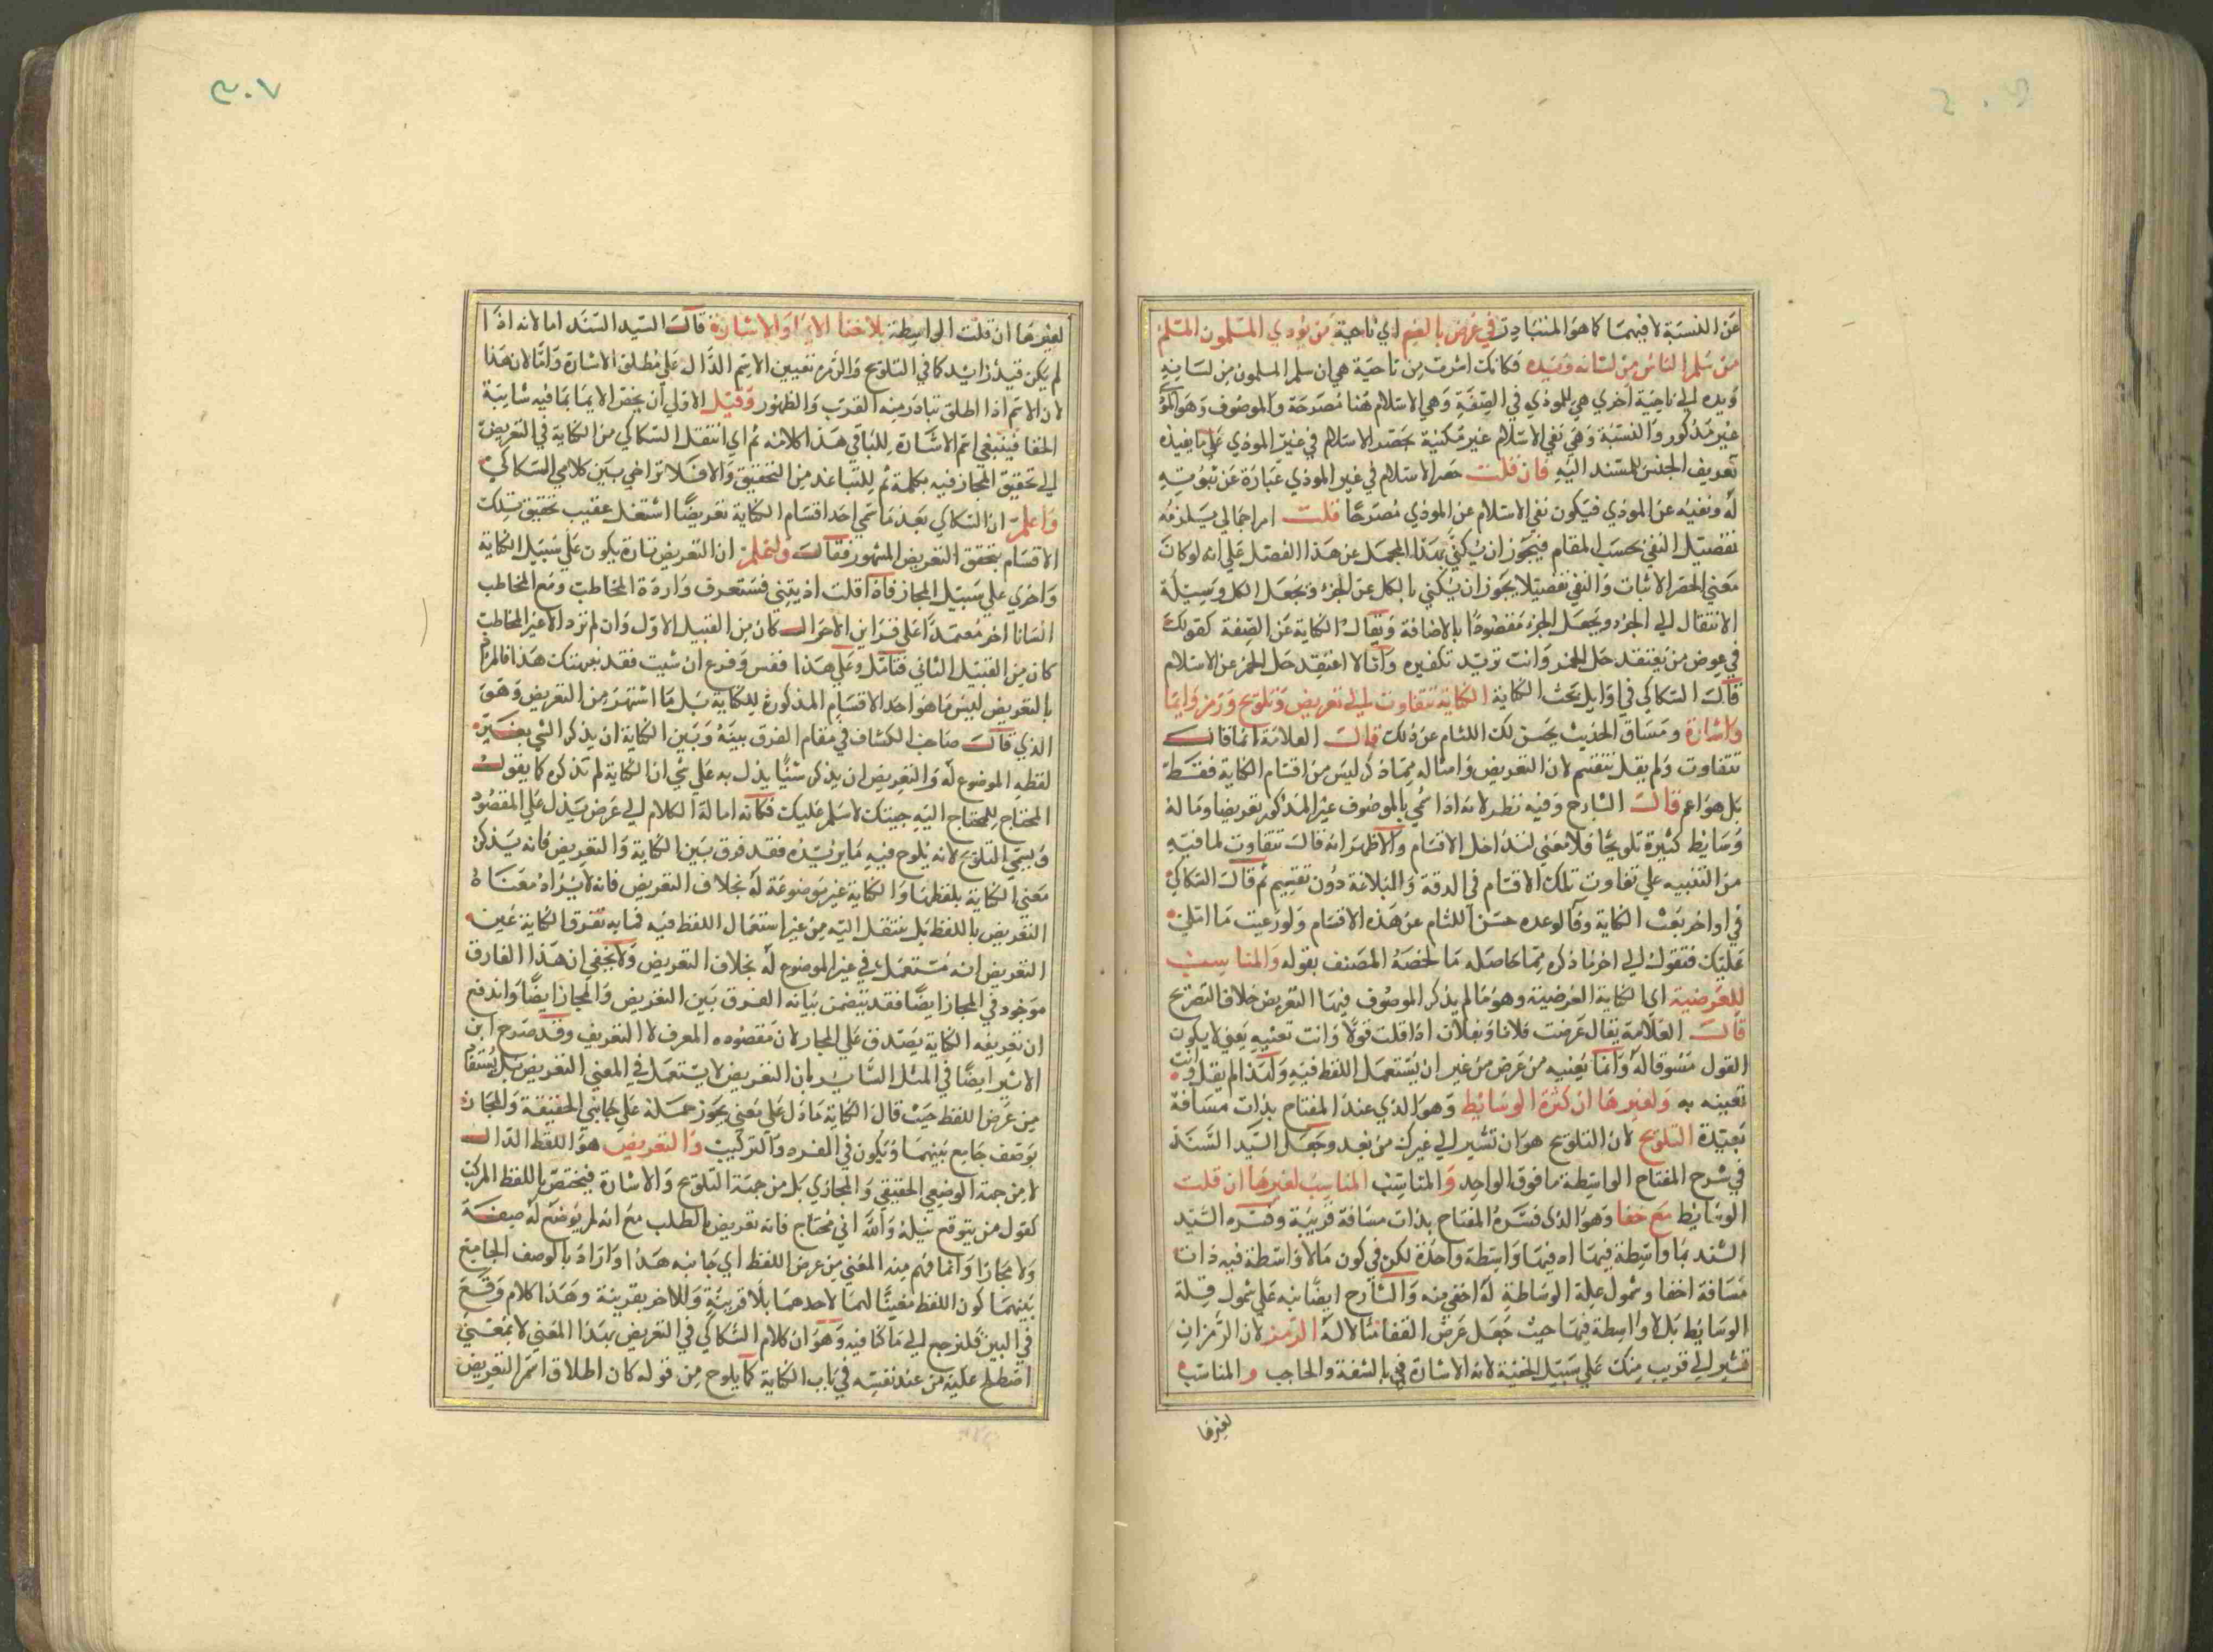 عن النسبة لا فيهما كما هو المتبادر في عرض بالضم اي ناحية من يؤذي المسلمون المسلم
من سلم الناس من لسانه ويده فكانك اشرت من ناحية هي ان سلم المسلمون من لسانه
ويده الي ناحية اخري هي للموذي في الصفة وهي الاسلام هنا مصرحة والموصوف وهو الموذي
غير مذكور والنسبة وهي نفي الاسلام غير مكنية بحصر الاسلام في غير الموذي علي ما يفيده
تعريف الجنس للمسند اليه فان قلت حصر الاسلام في غير الموذي عبارة عن ثبوته
له ونفيه عن الموذي فيكون نفي الاسلام عن الموذي مصرحا قلت امر اجمالي يلزمه
تفصيل النفي بحسب المقام فيجوز ان يكني بهذا المجمل عن هذا المفصل علي انه لو كان
معني الحصر الاثبات والنفي تفصيلا يجوز ان يكني بالكل عن الجزء ويجعل الكل وسيلة
الانتقال الي الجزء ويجعل الجزء مقصودا بالاضافة ويقال الكناية عن الصفة كقولك
في عرض من يعتقد حل الخمر وانت تريد تكفيره وانا لا اعتقد حل الخمر عن الاسلام
قال السكاكي في اوايل بحث الكناية الكناية تتفاوت الي تعريض وتلويح ورمز وايما
واشارة ومساق الحديث يحسن لك اللثام عن ذلك قال العلامة انما قال
تتفاوت ولم يقل تنقسم لان التعريض وامثاله مما ذكر ليس من اقسام الكناية فقط
بل هو اعم قال الشارح وفيه نظر لانه اذا سمي بالموصوف غير المذكور تعريضا وما له
وسايط كثيرة تلويحا فلا معني لتداخل الاقسام والاظهر انه قال تتفاوت لما فيه
من التنبيه علي تفاوت تلك الاقسام في الدقة والبلاغة دون تقسيم ثم قال السكاكي
في اواخر بحث الكناية وفا لوعده حسن اللثام عن هذه الاقسام ولو رعيت ما املي
عليك فتقول الي اخر ما ذكره مما حاصله ما لخصه المصنف بقوله والمناسب
للعرضية اي الكناية العرضية وهو ما لم يذكر الموصوف فيها التعريض خلاف التصريح
قال العلامة يقال عرضت فلانا وبفلان اذا قلت قولا وانت تعنيه يعني لا يكون
القول مسوقا له وانما يعنيه من عرض من غير ان يستعمل اللفظ فيه ولهذا لم يقل وانت
تعنيه به ولغيرها ان كثرة الوسايط وهو الذي عند المفتاح بذات مسافة
بعيدة التلويح لان التلويح هو ان تشير الي غيرك من بعد وجعل السيد السند
في شرح المفتاح الواسطة ما فوق الواحد والمناسب المناسب لغيرها ان قلت
الوسايط مع خفا وهو الذي فسره المفتاح بذات مسافة قريبة وفسره السيد
السند بما واسطة فيها اه فيها واسطة واحدة لكن في كون ما لا واسطة فيه ذات
مسافة اخفا وشمول علة الوساطة له اخفي منه والشارح ايضا نبه علي شمول قلة
الوسايط بلا واسطة فيها حيث جعل عرض القفا مثالا له الرمز لان الرمز ان
تشير الي قريب منك علي سبيل الخفية لانه الاشارة في بالشفة والحاجب والمناسب
لغيرها
٣٠٧
لغيرها ان قلت الواسطة بلا خفا الايما والاشارة قال السيد السند اما لانه اذا
لم يكن قيد زايد كما في التلويح والرمز تعيين الاسم الدال علي مطلق الاشارة واما لان هذا
لان الاسم اذا اطلق تبادر منه القرب والظهور وقيل الاولي ان يخص الايما بما فيه شايبة
الخفا فينبغي اعم الاشارة للباقي هذا كلامه ثم اي انتقل السكاكي من الكناية في التعريض
الي تحقيق المجاز فيه بكلمة ثم للتباعد من التحقيق والا فلا تراخي بين كلامي السكاكي
واعلم ان السكاكي بعد ما سمي احد اقسام الكناية تعريضا اشتغل عقيب تحقيق تلك
الاقسام بتحقق التعريض المشهور فقال ولتعلم ان التعريض تارة يكون علي سبيل الكناية
واخري علي سبيل المجاز فاذا قلت اذيتني فستعرف واردة المخاطب ومع المخاطب
انسانا اخر معتمدا علي قراين الاحوال كان من القبيل الاول وان لم ترد الا غير المخاطب
كان من القبيل الثاني فتامل وعلي هذا فقس وفرع ان شيت فقد نبهتك هذا فالمراد
بالتعريض ليس ما هو احد الاقسام المذكورة للكناية بل ما اشتهر من التعريض وهو
الذي قال صاحب الكشاف في مقام الفرق بينه وبين الكناية ان يذكر الشي بغير
لفظه الموضوع له والتعريض ان يذكر شيا يدل به علي شي ان الكناية لم تذكره كما يقول
المحتاج للمحتاج اليه جيتك لاسلم عليك فكانه امالة الكلام الي عرض يدل علي المقصود
ويسمي التلويح لانه يلوح فيه ما يريده فقد فرق بين الكناية والتعريض فانه يذكر
معني الكناية بلفظها والكناية غير موضوعة له بخلاف التعريض فانه لا يراد معناه
التعريض باللفظ بل ينتقل اليه من غير استعمال اللفظ فيه فما به تفرق الكناية عين
التعريض انه مستعمل في غير الموضوع له بخلاف التعريض ولا يخفي ان هذا الفارق
موجود في المجاز ايضا فقد تضمن بيانه الفرق بين التعريض والمجاز ايضا واندفع
ان تعريفه الكناية يصدق علي المجاز لان مقصوده المعرف لا التعريف وقد صرح ابن
الاثير ايضا في المثل الساير بان التعريض لا يستعمل في المعني التعريض بل يستفاد
من عرض اللفظ حيث قال الكناية ما دل علي معني يجوز حمله علي جانبي الحقيقة والمجاز
بوصف جامع بينهما ويكون في المفرد والتركيب والتعريض هو اللفظ الدال
لا من جهة الوضعي الحقيقي والمجازي بل من جهة التلويح والاشارة فيختص باللفظ المركب
كقول من يتوقع نيله والله اني محتاج فانه تعريض بالطلب مع انه لم يوضع له صيغة
ولا مجازا وانما فهم منه المعني من عرض اللفظ اي جانبه هذا وارادة بالوصف الجامع
بينهما كون اللفظ مغيثا لهما لاحدهما بلا قرينة وللاخر بقرينة وهذا كلام وقع
في البين فلنرجع الي ما كنا فيه وهو ان كلام السكاكي في التعريض بهذا المعني لا بمعني
اصطلح عليه من عند نفسه في باب الكناية كما يلوح من قوله كان اطلاق اسم التعريض